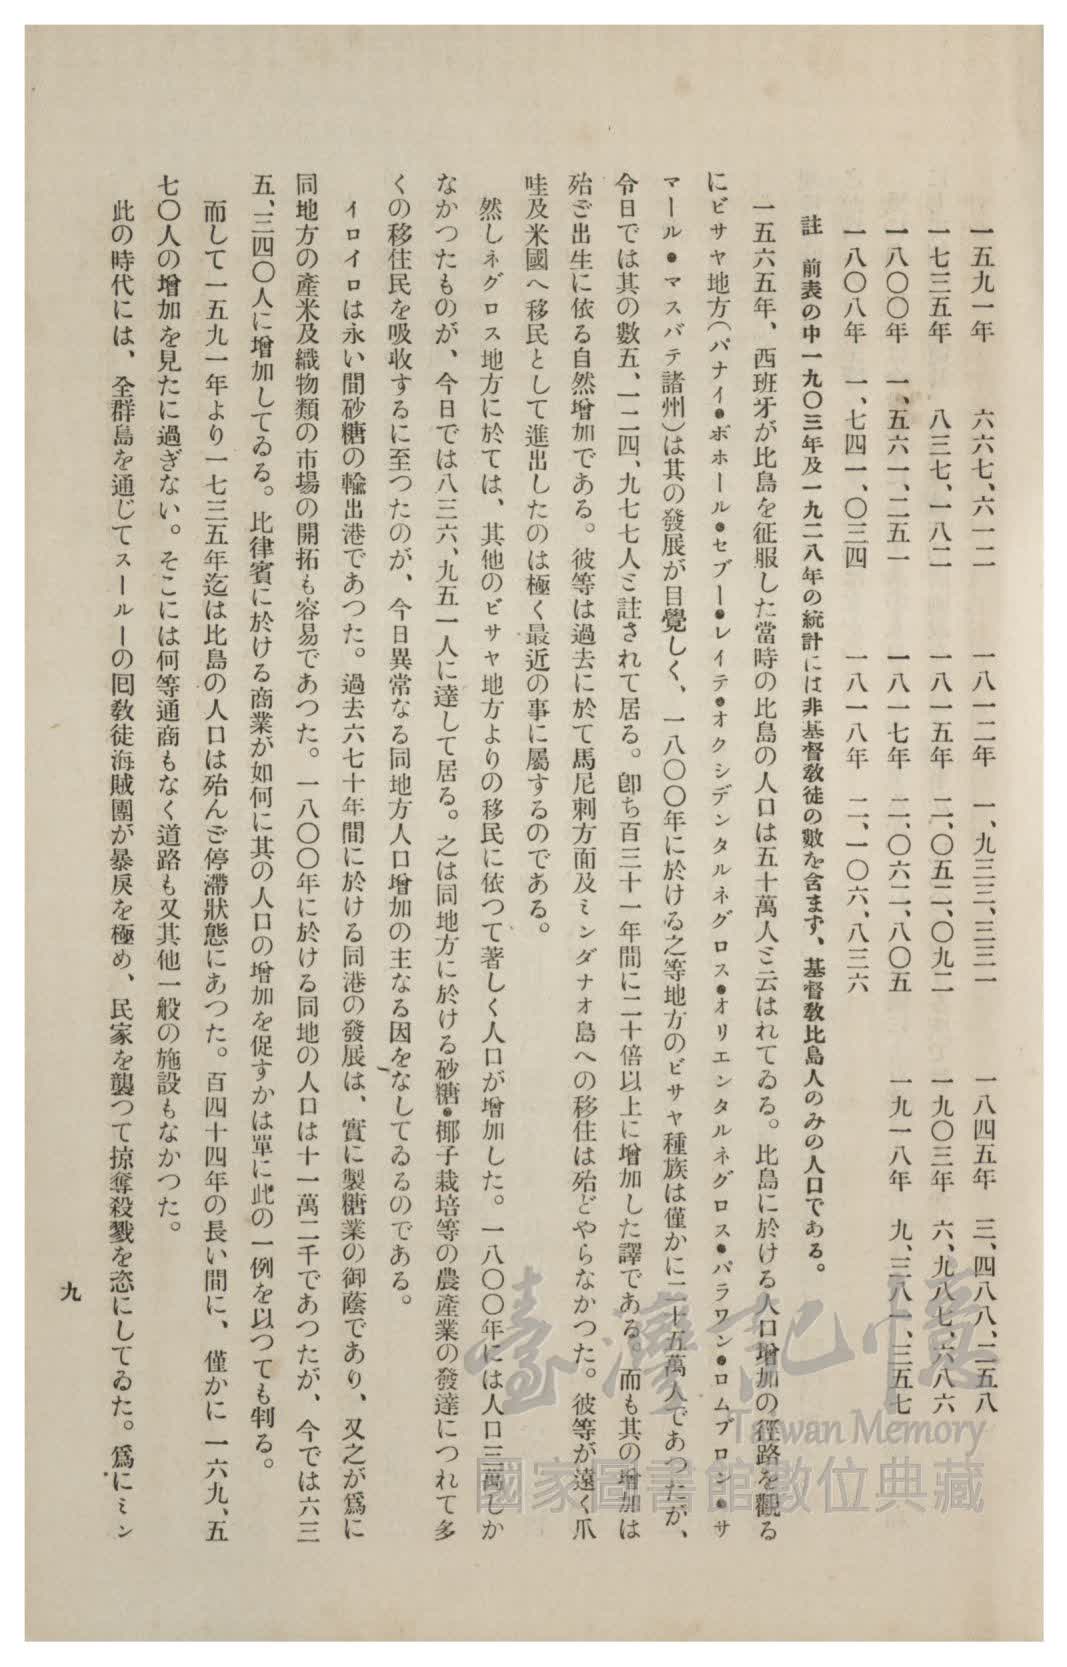 一五九一年　六六七、六一二　一八一二年　一、九三三、三三一　一八四五年　三、四八八、二五八
一七三五年　八三七、一八二　一八一五年　二、〇五二、〇九二　一九〇三年　六、九八七、六八六
一八〇〇年　一、五六一、二五一　一八一七年　二、〇六二、八〇五　一九一八年　九、三八一、三五七
一八〇八年　一、七四一、〇三四　一八一八年　二、一〇六、八三六
註　前表の中一九〇三年及一九二八年の統計には非基督敎徒の數を含まず、基督敎比島人のみの人口である。
一五六五年、西班牙が比島を征服した當時の比島の人口は五十萬人ミ云はれてゐる。比島に於ける人口增加の徑路を觀る
にビサヤ地方（パナイ・ボホール・セブー・レイテ・オクシデンタルネグロス・オリエンタルネグロス・パラワン・ロムブロン・サ
マール・マスバテ諸州）は其の發展が目覺しく、一八〇〇年に於ける之等地方のビサヤ種族は僅かに二十五萬人であつたが、
今日では其の數五、一二四、九七七人ミ註されて居る。卽ち百三十一年間に二十倍以上に增加した譯である。而も其の增加は
殆ご出生に依る自然增加である。彼等は過去に於て馬尼剌方面及ミンダナオ島への移住は殆どやらなかつた。彼等が遠く爪
哇及米國へ移民として進出したのは極く最近の事に屬するのである。
然しネグロス地方に於ては、其他のビサヤ地方よりの移民に依つて著しく人口が增加した。一八〇〇年には人口三萬しか
なかつたものが、今日では八三六、九五一人に達して居る。之は同地方に於ける砂糖・椰子栽培等の農產業の發達につれて多
くの移住民を吸收するに至つたのが、今日異常なる同地方人口增加の主なる因をなしてゐるのである。
イロイロは永い間砂糖の輸出港であつた。過去六七十年間に於ける同港の發展は、實に製糖業の御蔭であり、又之が爲に
同地方の產米及織物類の市場の開拓も容易であつた。一八〇〇年に於ける同地の人口は十一萬二千であつたが、今では六三
五、三四〇人に增加してゐる。比律賓に於ける商業が如何に其の人口の增加を促すかは單に此の一例を以つても判る。
而して一五九一年より一七三五年迄は比島の人口は殆んご停滯狀態にあつた。百四十四年の長い間に、僅かに一六九、五
七〇人の增加を見たに過ぎない。そこには何等通商もなく道路も又其他一般の施設もなかつた。
此の時代には、全群島を通じてスールーの囘敎徒海賊團が暴戾を極め、民家を襲つて掠奪殺戮を恣にしてゐた。爲にミン
九
臺灣記憶
Taiwan Memory
國家圖書館數位典藏